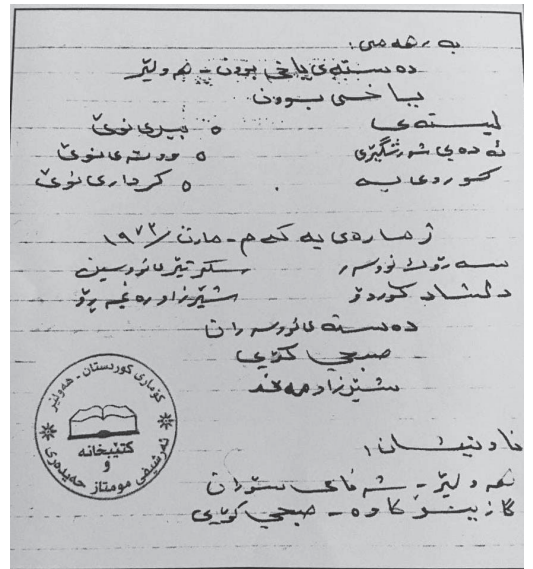 بە رهەمی:
دەستەی یاخی بوون - هەولێر
یاخی بوون
لیستەی ٥ بیری نوێ
ئەدەبی شۆرشگێری ٥ ووتەی نوێ
کوردی یە ٥ کرداری نوێ
ژمارەی یەکەم - مارت / ١٩٧٣
سەرۆک نووسەر سکرتێری نووسین
دلشاد کوردۆ شێرزاد رەنجەرۆ
دەستەی نووسەران
صبحی کۆیی
شێرزاد
ناونیشان:
هەولێر - شەقامی سۆران
گازینۆ کاوە - صبحی کۆیی
کۆماری کوردستان - هەولێر
کتێبخانە
و
ئەرشیفی مومتاز حەیدەری